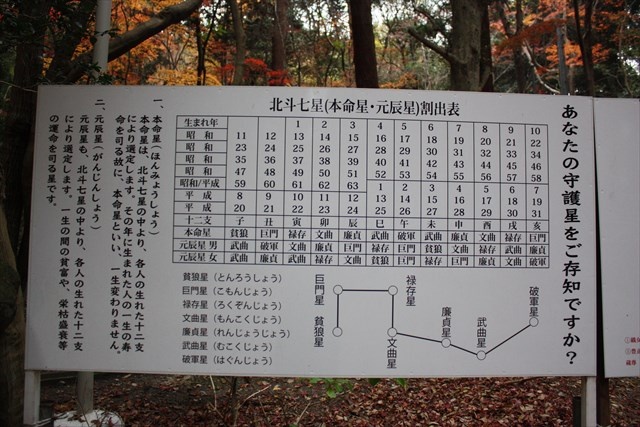 あなたの守護星をご存知ですか？
北斗七星(本命星・元辰星)割出表
生まれ年 1 2 3 4 5 6 7 8 9 10
昭和 11 12 13 14 15 16 17 18 19 20 21 22
昭和 23 24 25 26 27 28 29 30 31 32 33 34
昭和 35 36 37 38 39 40 41 42 43 44 45 46
昭和 47 48 49 50 51 52 53 54 55 56 57 58
昭和/平成 59 60 61 62 63 1 2 3 4 5 6 7
平成 8 9 10 11 12 13 14 15 16 17 18 19
平成 20 21 22 23 24 25 26 27 28 29 30 31
十二支 子 丑 寅 卯 辰 巳 午 未 申 酉 戌 亥
本命星 貪狼 巨門 禄存 文曲 廉貞 武曲 破軍 武曲 廉貞 文曲 禄存 巨門
元辰星 男 武曲 破軍
元辰星 女 武曲
貪狼星（とんろうしょう）
巨門星（こもんじょう）
禄存星（ろくぞんじょう）
文曲星（もんこくじょう）
廉貞星（れんじょうじょう）
武曲星（むこくじょう）
破軍星（はぐんじょう）
巨門星
貪狼星
禄存星
文曲星
廉貞星
武曲星
破軍星
一、本命星（ほんみょうしょう）
本命星は、北斗七星の中より、各人の生れた十二支
により選定します。その年に生まれた人の一生の寿
命を司る故に、本命星といい、一生変わりません。
二、元辰星（がんじんしょう）
元辰星も、北斗七星の中より、各人の生れた十二支
により選定します。一生の間の貧富や、栄枯盛衰等
の運命を司る星です。